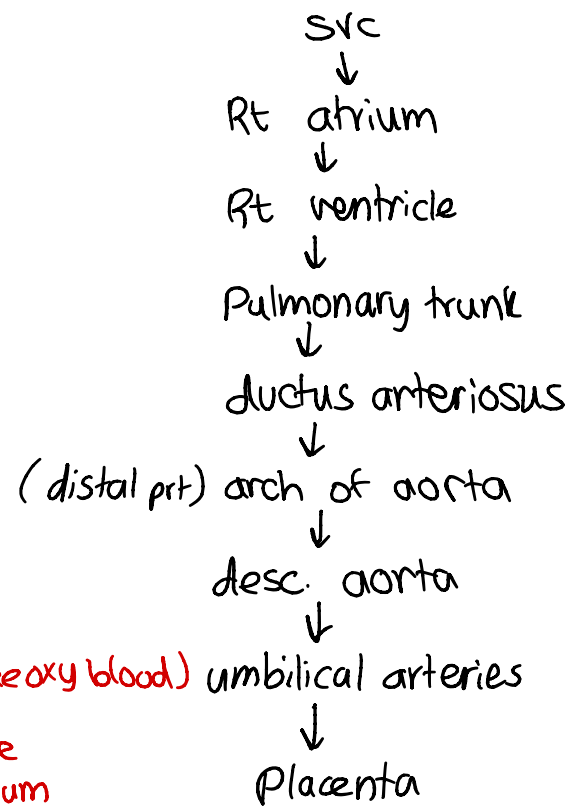 SVC
↓
Rt atrium
↓
Rt ventricle
↓
Pulmonary trunk
↓
ductus arteriosus
↓
(distal prt) arch of aorta
↓
desc. aorta
↓
eoxy blood) umbilical arteries
↓
e
um Placenta